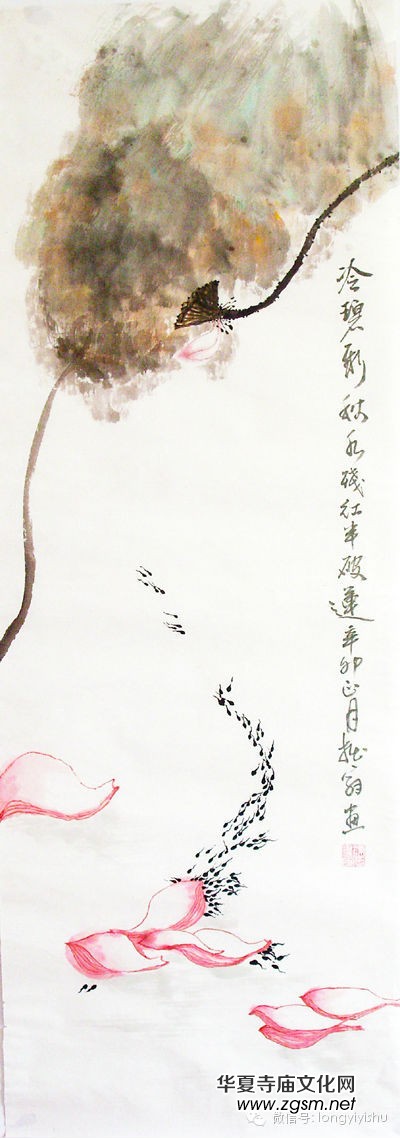 冷碧新秋水残红半破莲辛卯正月拙翁画
华夏寺庙文化网
www.zgsm.net
微信号: longyiyishu